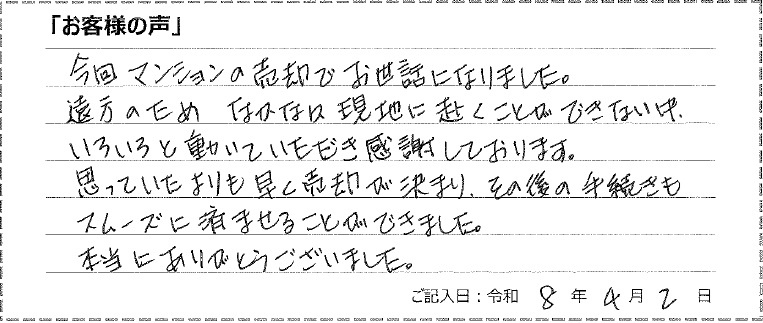 「お客様の声」
今回マンションの売却でお世話になりました。
遠方のため なかなか現地に赴くことができない中、
いろいろと動いていただき感謝しております。
思っていたよりも早く売却が決まり、その後の手続きも
スムーズに済ませることができました。
本当にありがとうございました。
ご記入日：令和 8 年 4 月 2 日